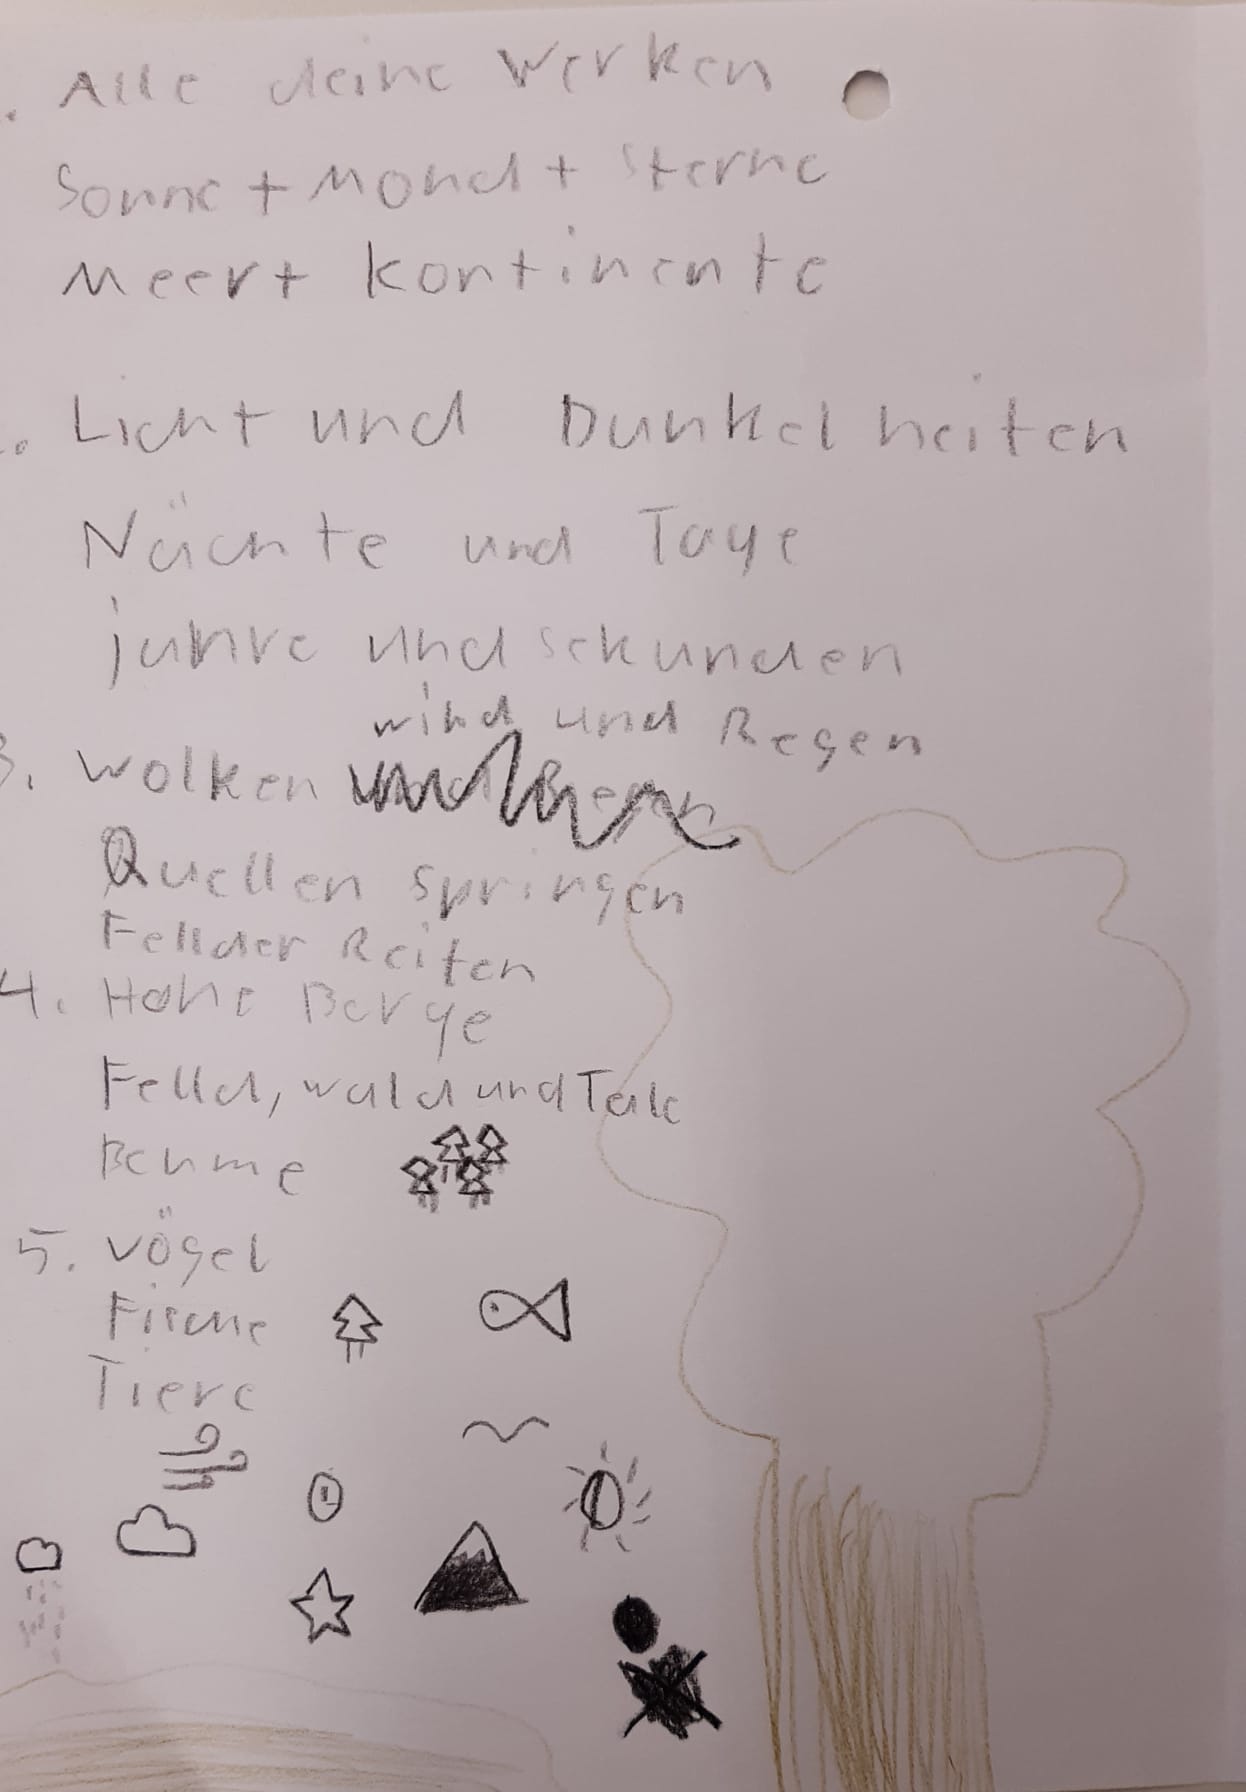 . Alle deine Werken
Sonne + Mond + Sterne
Meer + Kontinente
. Licht und Dunkelheiten
Nächte und Tage
jahre und sekunden
wind und Regen
3. Wolken
Quellen springen
Fellder Reiten
4. Hohe Berge
Felld, wald und Tale
Beume
5. Vögel
Fische
Tiere